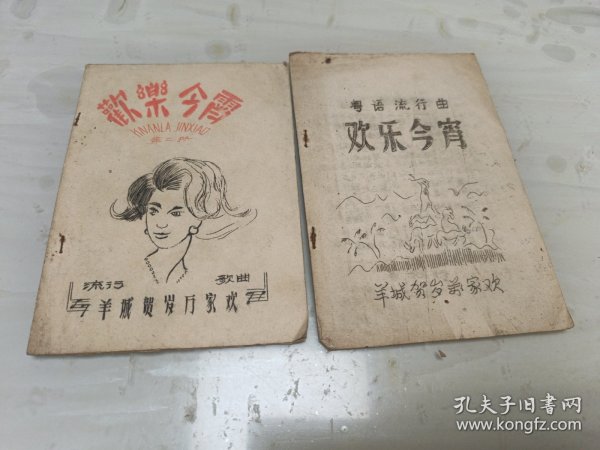 歡樂今霄
KNANLA JINXIAO
第二册
流行 歌曲
羊城贺岁万家欢
粤语 流行曲
欢乐今宵
羊城贺岁万家欢
孔夫子旧书网
www.kongfz.com